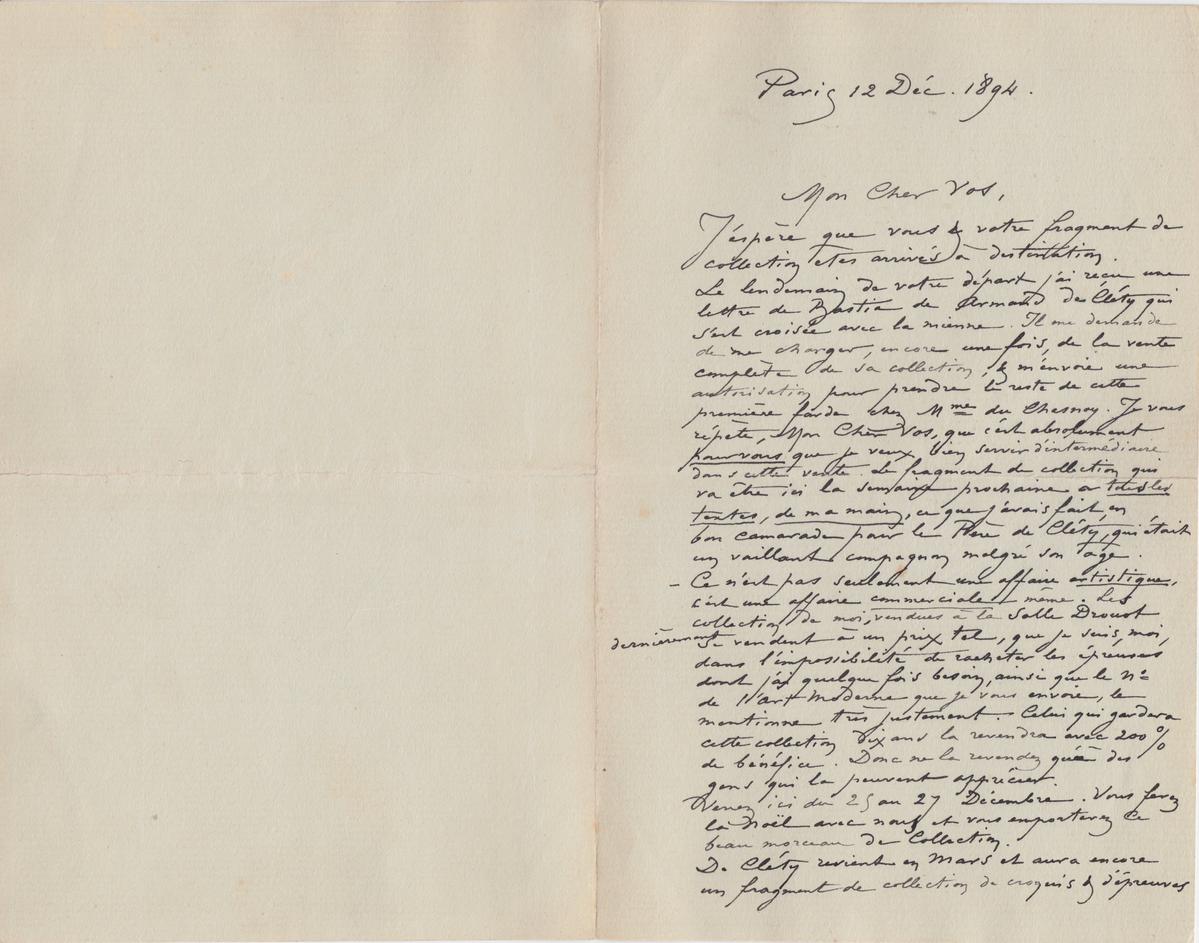 Paris 12 Déc. 1894.
Mon Cher Vos,
J'espère que vous & votre fragment de
collection êtes arrivés à destination.
Le lendemain de votre départ j'ai reçu une
lettre de Bastia de Armand de Cléty qui
s'est croisée avec la mienne. Il me demande
de me charger, encore une fois, de la vente
complète de sa collection, & m'envoie une
autorisation pour prendre le reste de cette
première farde chez Mme du Chesnoy. Je vous
répète, Mon Cher Vos, que c'est absolument
pour vous que je veux bien servir d'intermédiaire
dans cette vente. Le fragment de collection qui
va être ici la semaine prochaine a tous les
textes, de ma main, ce que j'avais fait, en
bon camarade pour le Père de Cléty, qui était
un vaillant compagnon malgré son âge.
– Ce n'est pas seulement une affaire artistique,
c'est une affaire commerciale même. Les
collection de moi, vendues à la Salle Drouot
dernièrement se vendent à un prix tel, que je suis, moi,
dans l'impossibilité de racheter les épreuves
dont j'ai quelque fois besoin, ainsi que le no
de l'Art Moderne que je vous envoie, le
mentionne très justement. Celui qui gardera
cette collection dix ans la revendra avec 200%
de bénéfice. Donc ne la revendez qu'à des
gens qui la peuvent apprécier.
Venez ici du 25 au 27 Décembre. Vous ferez
la Noël avec nous et vous emporterez ce
beau morceau de Collection.
De Cléty revient en Mars et aura encore
un fragment de collection de croquis & d'épreuves